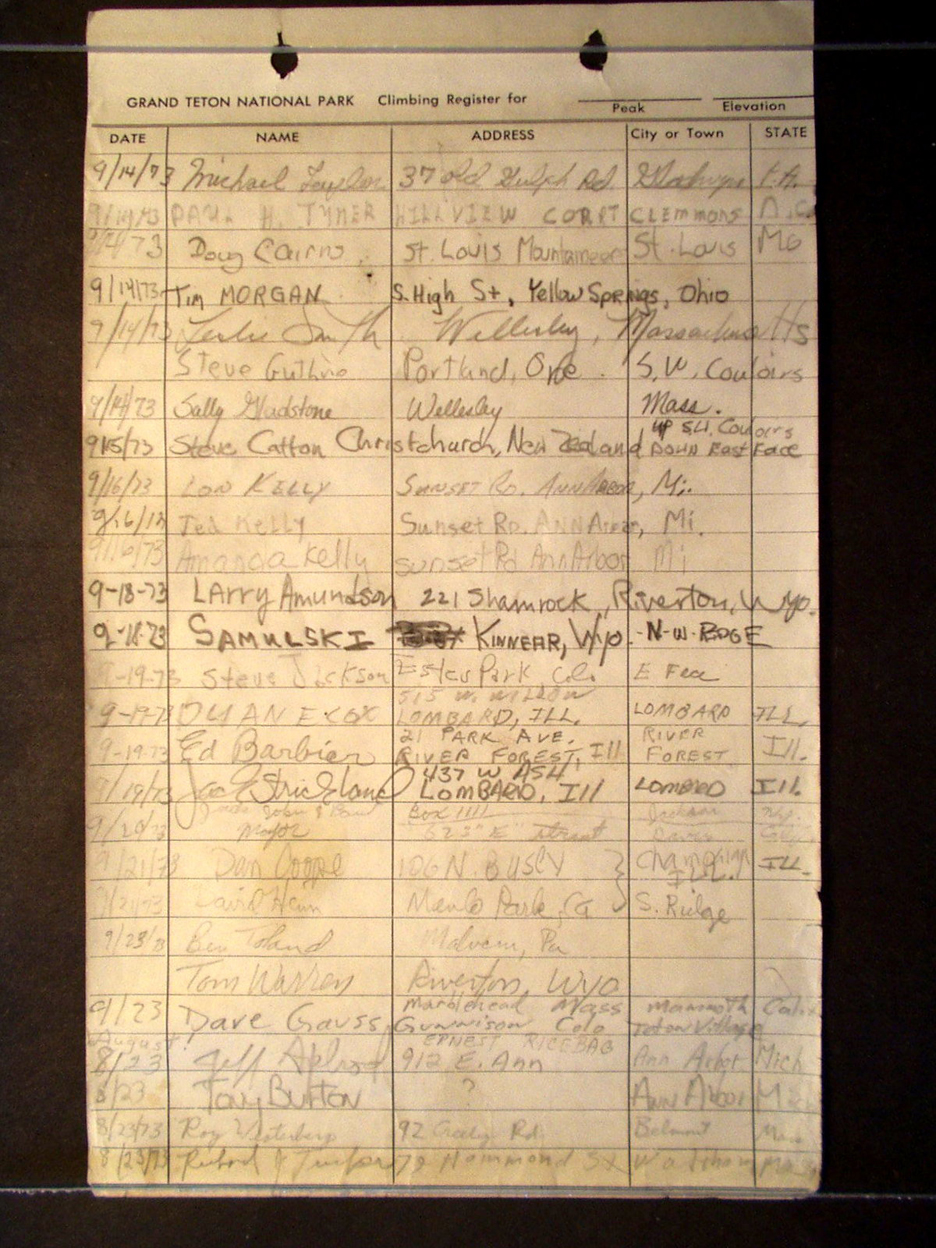 GRAND TETON NATIONAL PARK Climbing Register for
Peak Elevation
DATE NAME ADDRESS City or Town STATE
9/14/73 Michael 37 Old Gulph Rd P.A.
9/14/73 PAUL H. TYNER HILLVIEW COURT CLEMMONS N.C.
9/14/73 Doug Cairns St. Louis Mountaineers St. Louis Mo
9/14/73 TIM MORGAN S. High St, Yellow Springs, Ohio
9/14/73 Leslie Smith Wellesley, Massachusetts
Steve Guthrie Portland, Ore. S.W. Couloirs
9/14/73 Sally Gladstone Wellesley Mass.
up S.W. Couloirs
9/15/73 Steve Catton Christchurch, New Zealand DOWN East Face
9/16/73 LON KELLY SUNSET RD. ANN ARBOR, Mi.
9/16/73 Ted Kelly Sunset RD. ANN Arbor, Mi.
9/16/73 Amanda Kelly sunset Rd Ann Arbor Mi
9-18-73 LArry Amundson 221 Shamrock, Riverton, Wyo.
9-18-73 SAMULSKI KINNEAR, Wyo. -N-W-RDGE
9-19-73 Steve Jackson Estes Park Colo E Face
515 W. WILSON
9-19-73 DUANE COX LOMBARD, ILL. LOMBARD ILL.
21 PARK AVE. RIVER
9-19-73 Ed Barbier RIVER FOREST, Ill FOREST Ill.
437 W ASH
9/19/73 Strickland LOMBARD, Ill LOMBARD Ill.
Box 1111 Jackson Wy.
9/20/73 Mayor 623 "E" street Davis Calif
9/21/73 Dan 106 N. BUSEY Champaign ILL.
Ill.
David Hann Menlo Park, CA S. Ridge
9/23/73 Ben Toland Malvern, Pa
Tom Warren Riverton, WYO
Marblehead Mass Mammoth Calif
9/23 Dave Gauss Gunnison Colo Teton Village
August! ERNEST RICEBAG
8/23 Jeff 912 E. Ann Ann Arbor Mich
8/23 Tony Burton ? Ann Arbor Mi
8/23/73 Roy Westerberg 92 Rd. Belmont Mass
8/23/73 Richard J 79 Hammond St Waltham Mass